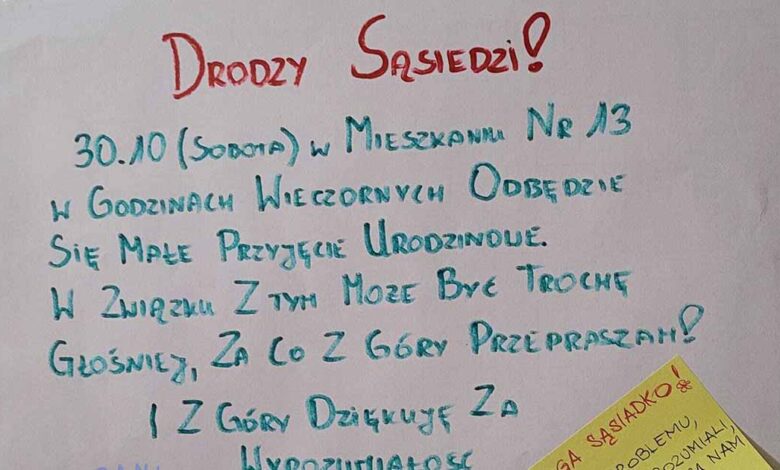 DRODZY SĄSIEDZI!
30.10 (SOBOTA) W MIESZKANIU NR 13
W GODZINACH WIECZORNYCH ODBĘDZIE
SIĘ MAŁE PRZYJĘCIE URODZINOWE.
W ZWIĄZKU Z TYM MOŻE BYĆ TROCHĘ
GŁOŚNIEJ, ZA CO Z GÓRY PRZEPRASZAM!
I Z GÓRY DZIĘKUJĘ ZA
WYROZUMIAŁOŚĆ
SĄSIADKO!
PROBLEMU,
NAM